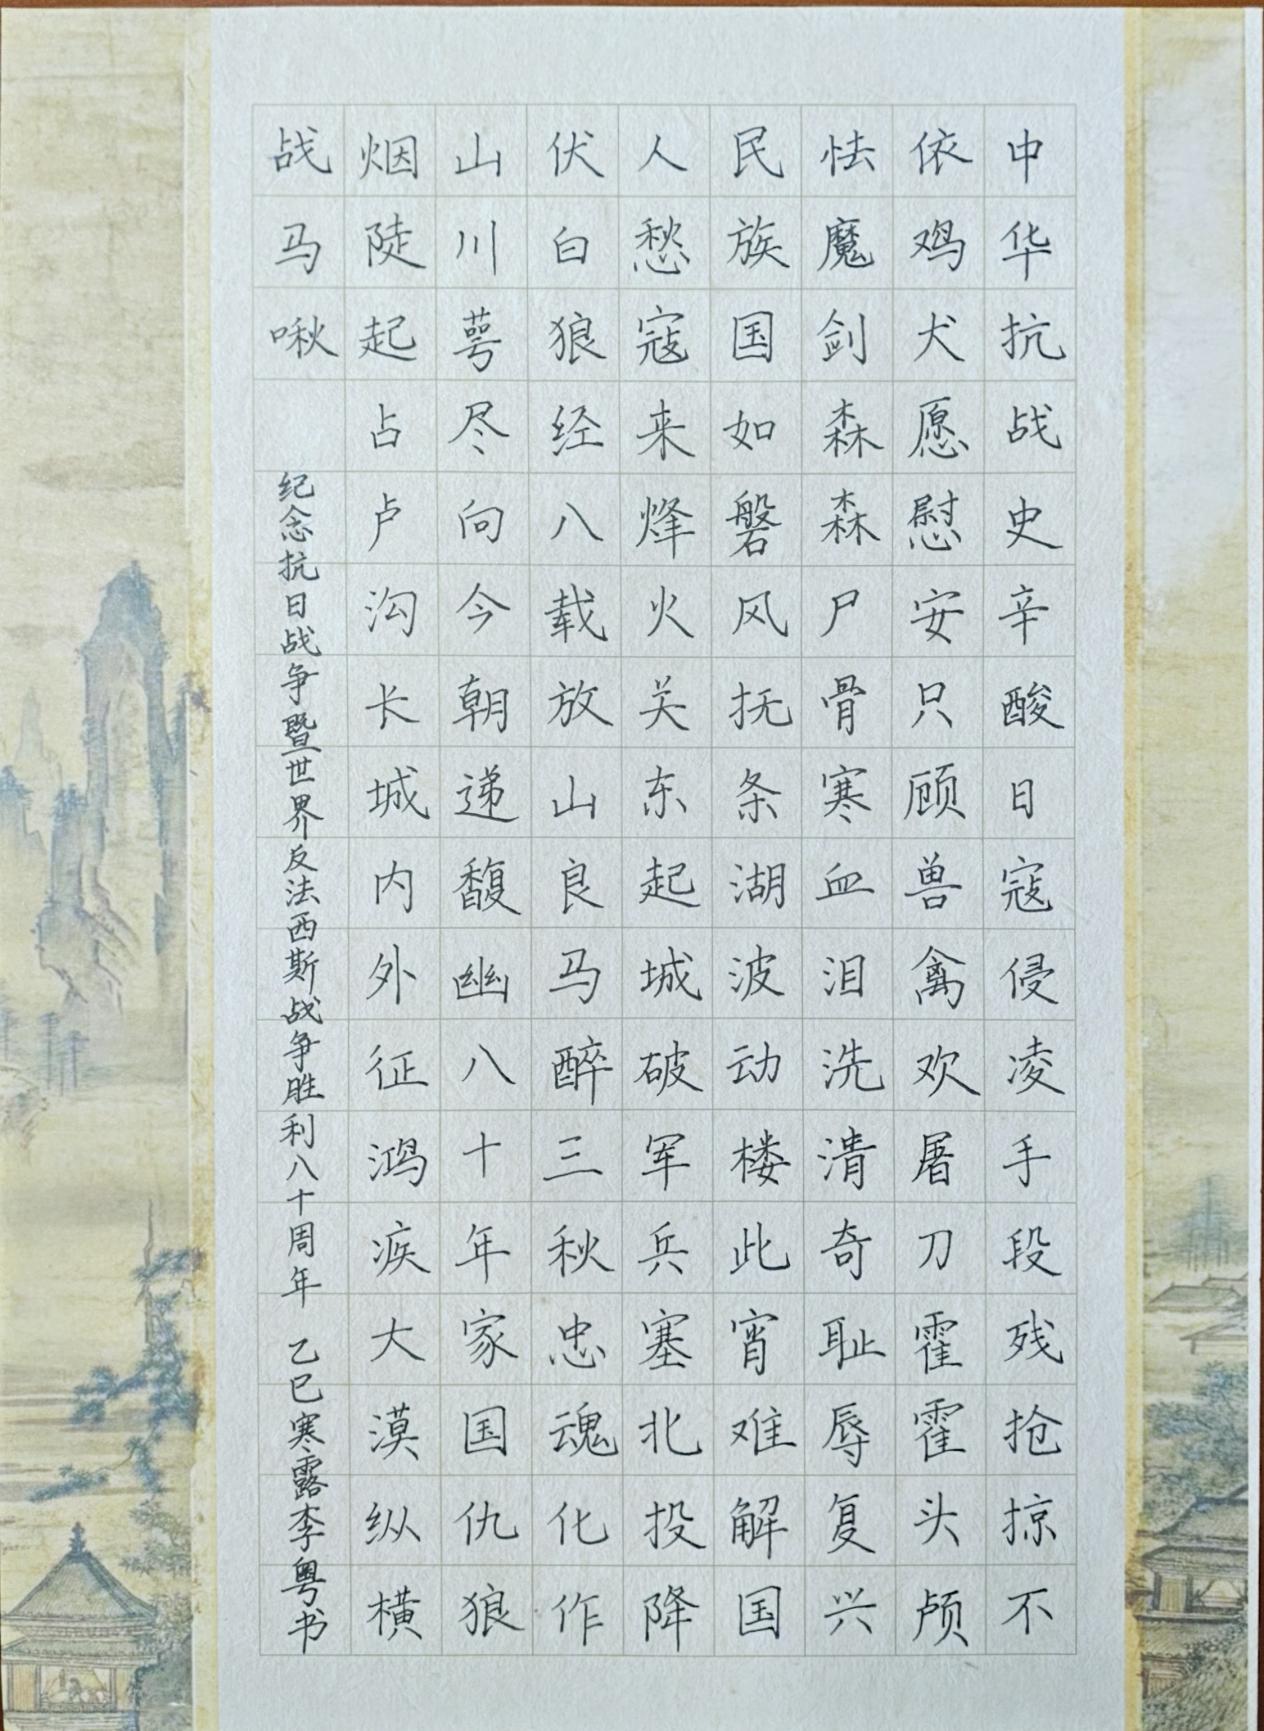 中华抗战史辛酸日寇侵凌手段残抢掠不
依鸡犬愿慰安只顾兽禽欢屠刀霍霍头颅
怯魔剑森森尸骨寒血泪洗清奇耻辱复兴
民族国如磐风抚条湖波动楼此宵难解国
人愁寇来烽火关东起城破军兵塞北投降
伏白狼经八载放山良马醉三秋忠魂化作
山川萼尽向今朝递馥幽八十年家国仇狼
烟陡起占卢沟长城内外征鸿疾大漠纵横
战马啾
纪念抗日战争暨世界反法西斯战争胜利八十周年 乙巳寒露李粤书